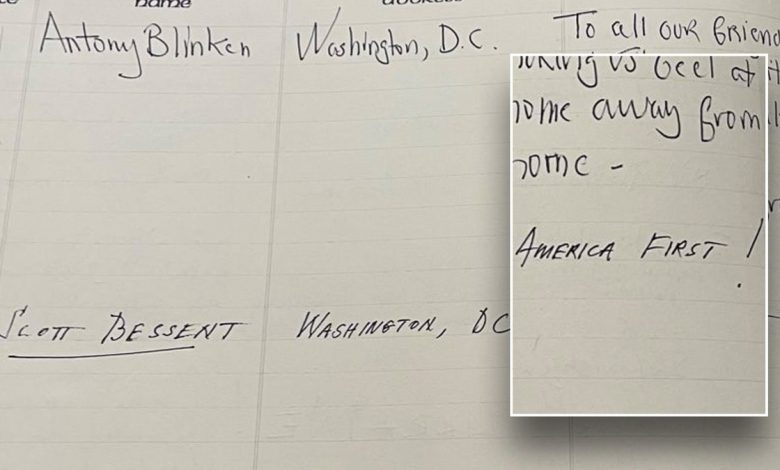 name
Antony Blinken Washington, D.C. To all our friend
us feel at
home away from
home -
AMERICA FIRST!
SCOTT BESSENT WASHINGTON, DC